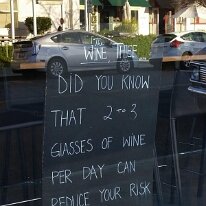 THE
WINE THIEF
DID YOU KNOW
THAT 2 TO 3
GLASSES OF WINE
PER DAY CAN
REDUCE YOUR RISK